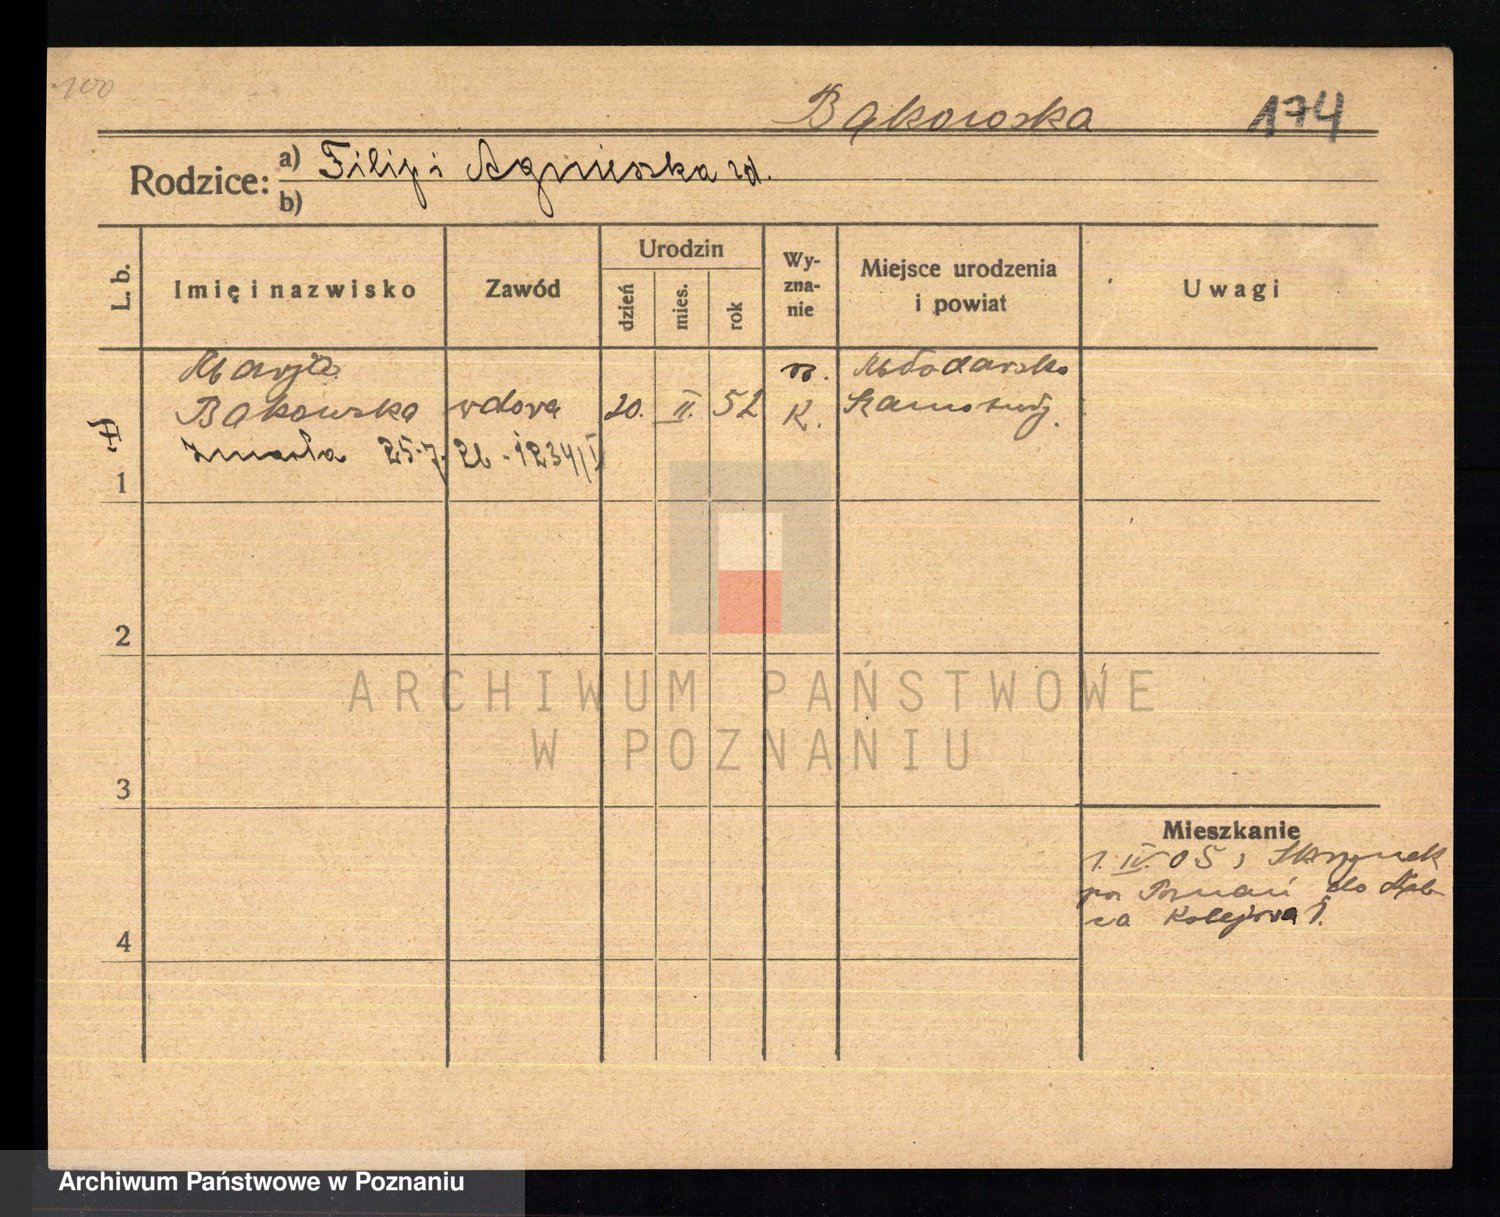 100
Bąkowska 174
Rodzice: a) Filip i Agnieszka zd.
b)
L. b.
Imię i nazwisko
Zawód
Urodzin
dzień
mies.
rok
Wy-
zna-
nie
Miejsce urodzenia
i powiat
Uwagi
Marja r. Młodawsko
Bąkowska wdowa 20. II. 52 K. Szamotuły.
Zmarła 25.7. 26 - 1234/I
1
2
3
4
Mieszkanie
1. IV. 05, Skrzynek
Poznań do
Kolejowa
ARCHIWUM PAŃSTWOWE
W POZNANIU
Archiwum Państwowe w Poznaniu